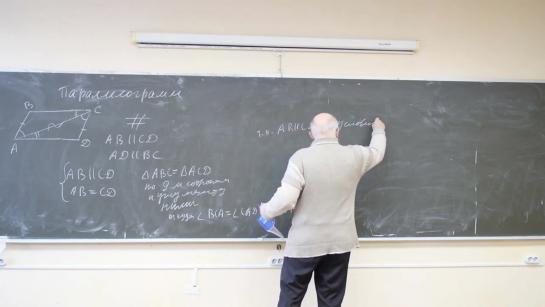 Параллелограмм
B C
A D
#
AB||CD
AD||BC
AB||CD
AB=CD
△ABC=△ACD
по 2м сторонам
и углу между
ними
тогда ∠BCA=∠CAD
т.к. AB||C